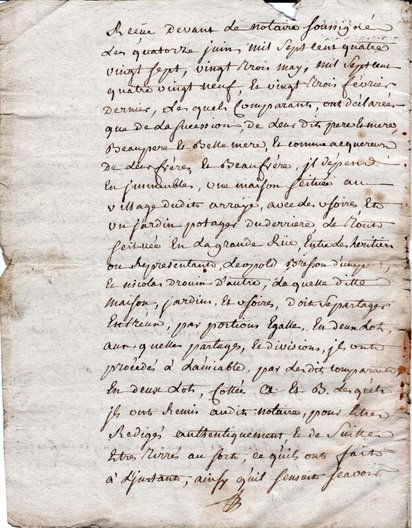 Reçue devant de notaire soussigné
Les quatorze juin, mil Sept cent quatre
vingt Sept, vingt trois may, mil Sept cent
quatre vingt neuf, Et vingt trois février
dernier, Les quels Comparant, ont déclarées
que de la sucession, de Leur dits pere et mere
Beaupere Et Belle mere, Et comme acquereur
de Leur frére, Et Beau frére, jl dépend
En jmmeubles, une maison Scituée au
village dudit arraye, avec des usoires Et
un jardin potager du derriere, Le tout
scituée En La grande Rüe, Entre Les heritiers
ou Representants, Leopold Bresson d'une part
Et nicolas drouin d'autre, La quelle ditte
maison, jardin, Et usoires, doit Se partager
Entr'eux, par portions Egalles, En deux Lots,
aux quelles partages, Et divisions, jls ont
procédés à L'amiable, par Les dit comparant
En deux Lots, Cottée A Et B. Les quels
jls ont Remis audits notaire, pour Etre
Redigés authentiquement, Et de Suitte
Etre tirrés au sort, ce qu'ils ont fait
à L'jnstant, ainsy qu'il sensuit Scavoir